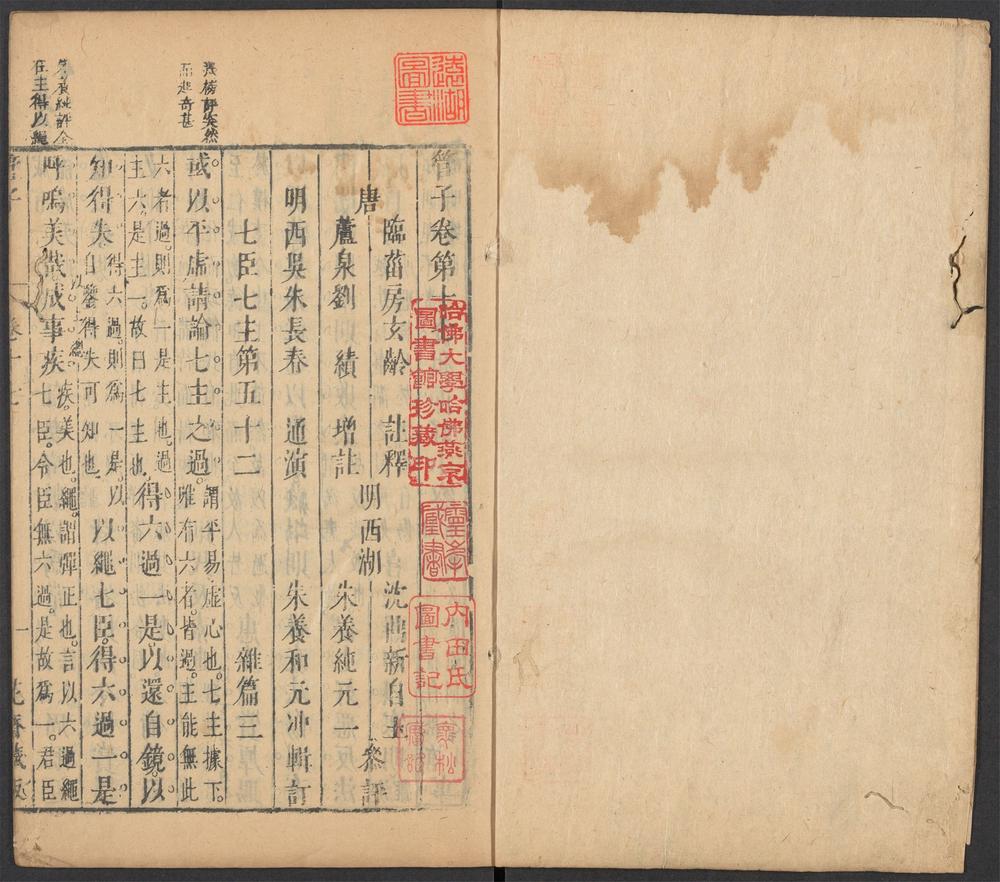 管子卷第十
唐
臨菑房玄齡 註釋
蘆泉劉 績 增註
明西湖
沈鼎新自玉
朱養純元一
參評
明西吳朱長春 通演
朱養和元冲輯訂
七臣七主第五十二 雜篇三
或以平虛請論七主之過。
謂平易虛心也。七主據下。
雖有六者。皆過。主能無此
六者。過則爲一是主也。過
主六。是主一。故曰七主也。
得六過一是以還自鏡以
知得失
得六過。則爲一是。以
自鑒得失可知也
以繩七臣。得六過一是
呼嗚美哉成事疾
疾。美也。繩。謂彈正也。言以六過繩
七臣。令臣無六過。是故爲一。君臣
張榜評突然
而起奇甚
朱養純評全
在主得以繩
卷十七
一
花齋藏板
哈佛大學哈佛燕京
圖書館珍藏印
內田氏
圖書記